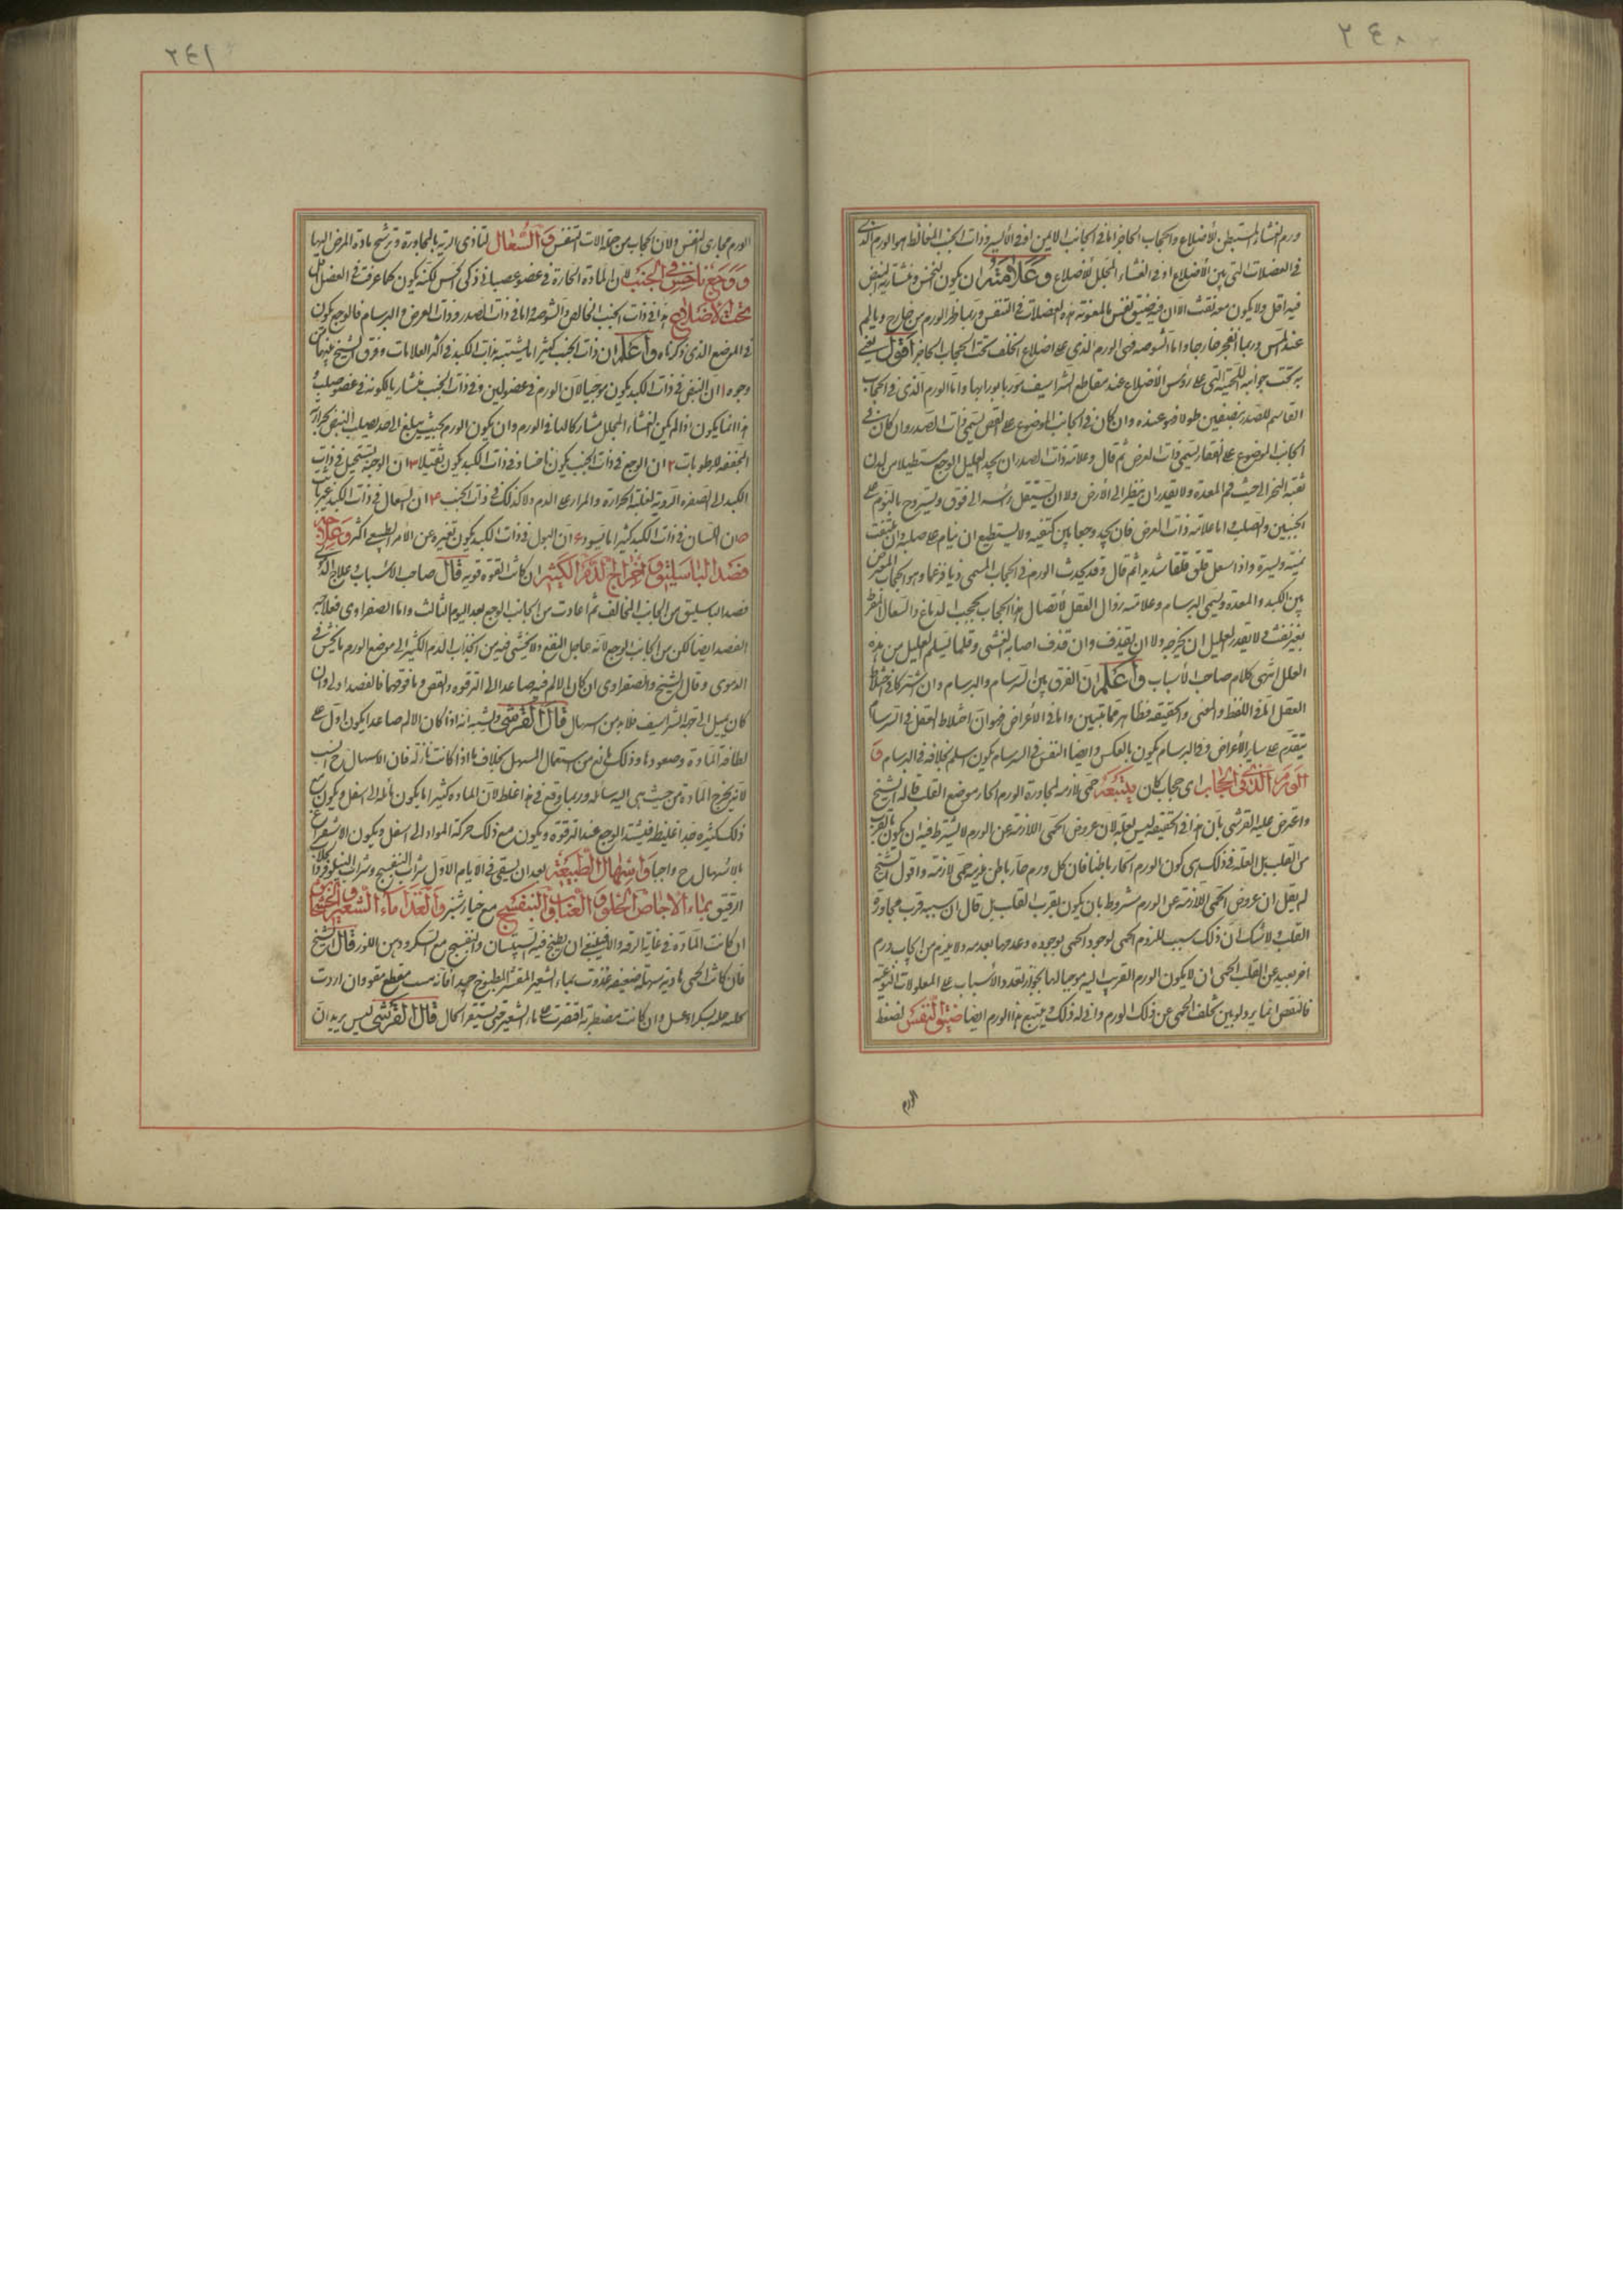 ٢٤٠
ورم الغشاء المستبطن للأضلاع والحجاب الحاجز اما في الجانب الايمن او في الأيسر وذات الجنب المغالط هو الورم الذى
في العضلات التى بين الأضلاع او في الغشاء المجلل للأضلاع وعلامته ان يكون النخس ومنشارية النبض
فيه اقل ولا يكون معه نفث الا ان فيه ضيق نفس لمعونة هذه العضلات في التنفس وربما ظهر الورم من خارج ويالم
عند اللمس وربما انفجر خارجا واما الشوصة فهى الورم الذى على اضلاع الخلف تحت الحجاب الحاجز اقول يعنى
به تحت جوانبه اللحمية التى على رؤس الأضلاع عند مقاطع الشراسيف واما الورم الذى في الحجاب
القاسم للصدر بنصفين طولا فهو عنده وان كان في الجانب الموضوع على القص يسمى ذات الصدر وان كان في
الجانب الموضوع على الفقار يسمى ذات العرض ثم قال وعلامة ذات الصدر ان يجد العليل الوجع مستطيلا من لدن
ثغبة النحر الى حيث فم المعدة ولا يقدر ان ينظر الى الأرض ولا ان يستقل راسه الى فوق ويستروح بالنوم على
الجنبين والصلب اما علامة ذات العرض فان يجد وجعا بين كتفيه ولا يستطيع ان ينام على صلبه وان يلتفت
يمنة ويسرة واذا سعل قلق قلقا شديدا ثم قال وقد يحدث الورم في الحجاب المسمى ذيافرغما وهو الحجاب المعترض
بين الكبد والمعدة ويسمى البرسام وعلامته زوال العقل لأتصال هذا الحجاب بحجب الدماغ والسعال المفرط
بغير نفث لا يقدر العليل ان يخرجه ولا ان يقذف وان قذف اصابه الغشى وقلما يسلم العليل من هذه
العلل انتهى كلام صاحب الأسباب واعلم ان الفرق بين السرسام والبرسام وان اشتركا في اختلاط
العقل اما في اللفظ والمعنى والحقيقة فظاهر مما تبين واما في الأعراض فهو ان اختلاط العقل في السرسام
يتقدم على ساير الأعراض وفي البرسام يكون بالعكس وايضا النفس في السرسام يكون اسلم بخلافه في البرسام و
الورم الذى في الحجاب اى حجاب كان يتبعه حمى لازمة لمجاورة الورم الحار موضع القلب قاله الشيخ
واعترض عليه القرشى بان هذا في الحقيقة ليس بعلة لان عروض الحمى اللازمة عن الورم لا يشترط فيه ان يكون بالقرب
من القلب بل العلة في ذلك هى كون الورم الحار باطنا فان كل ورم حار باطن يلزمه حمى لازمة واقول الشيخ
لم يقل ان عروض الحمى اللازمة عن الورم مشروط بان يكون بقرب القلب بل قال ان سببه قرب مجاورة
القلب ولا شك ان ذلك سبب للزوم الحمى لوجود الحمى بوجوده وعدمها بعدمه ولا يلزم من ايجاب ورم
اخر بعيد عن القلب الحمى ان لا يكون الورم القريب اليه موجبا لها لجواز تعدد الأسباب على المعلولات النوعية
فالنقض انما يرد لو بين تخلف الحمى عن ذلك الورم وانى له ذلك ويتبع هذا الورم ايضا ضيق النفس لضغط
الورم
٢٤١
الورم مجارى النفس ولان الحجاب من جملة الات التنفس والسعال لتاذى الرية بالمجاورة وترشح مادة المرض اليها
ووجع ناخس في الجنب لان المادة الحارة في عضو عصبانى ذكى الحس لكنه يكون كما عرفت في العضل
تحت الاضلاع هذا في ذات الجنب الخالص والشوصة واما في ذات الصدر وذات العرض والبرسام فالوجع يكون
في الموضع الذى ذكرناه واعلم ان ذات الجنب كثيرا ما يشتبه بذات الكبد في اكثر العلامات وفرق الشيخ بينهما من
وجوه ا ان النبض في ذات الكبد يكون موجيا لان الورم في عضو لين وفي ذات الجنب منشاريا لكونه في عضو صلب
هذا انما يكون اذا لم يكن الغشاء المجلل مشاركا لها في الورم وان يكون الورم بحيث يبلغ الى حد يصلب النبض لحرارته
المجففة للرطوبات ٢ ان الوجع في ذات الجنب يكون ناخسا وفي ذات الكبد يكون ثقيلا ٣ ان الوجه يستحيل في ذات
الكبد الى الصفرة الردية لغلبة الحرارة والمرار على الدم ولا كذلك في ذات الجنب ٤ ان السعال في ذات الكبد غير نافث
٥ ان اللسان في ذات الكبد كثيرا ما يسود ٦ ان البول في ذات الكبد يكون تغيره عن الأمر الطبيعى اكثر وعلاجه
فصد الباسليق واخراج الدم الكثير ان كانت القوة قوية قال صاحب الاسباب وعلاج الدموى
فصد الباسليق من الجانب المخالف ثم اعادت من الجانب الوجع بعد اليوم الثالث واما الصفراوى فعلاجه
الفصد ايضا لكن من الجانب الوجع لانه عاجل النفع ولا يخشى فيه من انجذاب الدم الكثير الى موضع الورم ما يخشى في
الدموى وقال الشيخ والصفراوى ان كان الالم فيه صاعدا الى الترقوة والقص وما فوقها فالفصد اولى وان
كان يميل الى جهة الشراسيف فلابد من اسهال قال القرشى ويشبه انه اذا كان الالم صاعدا يكون اول على
لطافة المادة وصعودها وذلك مانع من استعمال المسهل بخلاف ما اذا كانت نازلة فان الاسهال ح انسب
لانه يخرج المادة من حيث هى اليه سائلة وربما وقع في هذا غلط لان المادة كثيرا ما يكون مائلة الى اسفل ويكون مع
ذلك كثيرة جدا غليظة فيشتد الوجع عند الترقوة ويكون مع ذلك حركة المواد الى اسفل ويكون الاستفراغ
بالاسهال ح واجبا واسهال الطبيعة بعد ان يسقى في الايام الاول شراب البنفسج وشراب النيلوفر والجلاب
الرقيق بماء الاجاص الحلو والعناب والبنفسج مع خيار شنبر والغذاء ماء الشعير والخشخاش
ان كانت المادة في غاية الرقة والا فينبغى ان يطبخ فيه السبستان والبنفسج مع السكر ودهن اللوز قال الشيخ
فان كانت الحمى هادية سهلة ضعيفة غذوت بماء الشعير المقشر المطبوخ جيدا فانه مقطع مقو وان اردت
تحليه حله بسكر او عسل وان كانت مضطربة اقتصرت على ماء الشعير حتى يستقر الحال قال القرشى ليس يريد ان